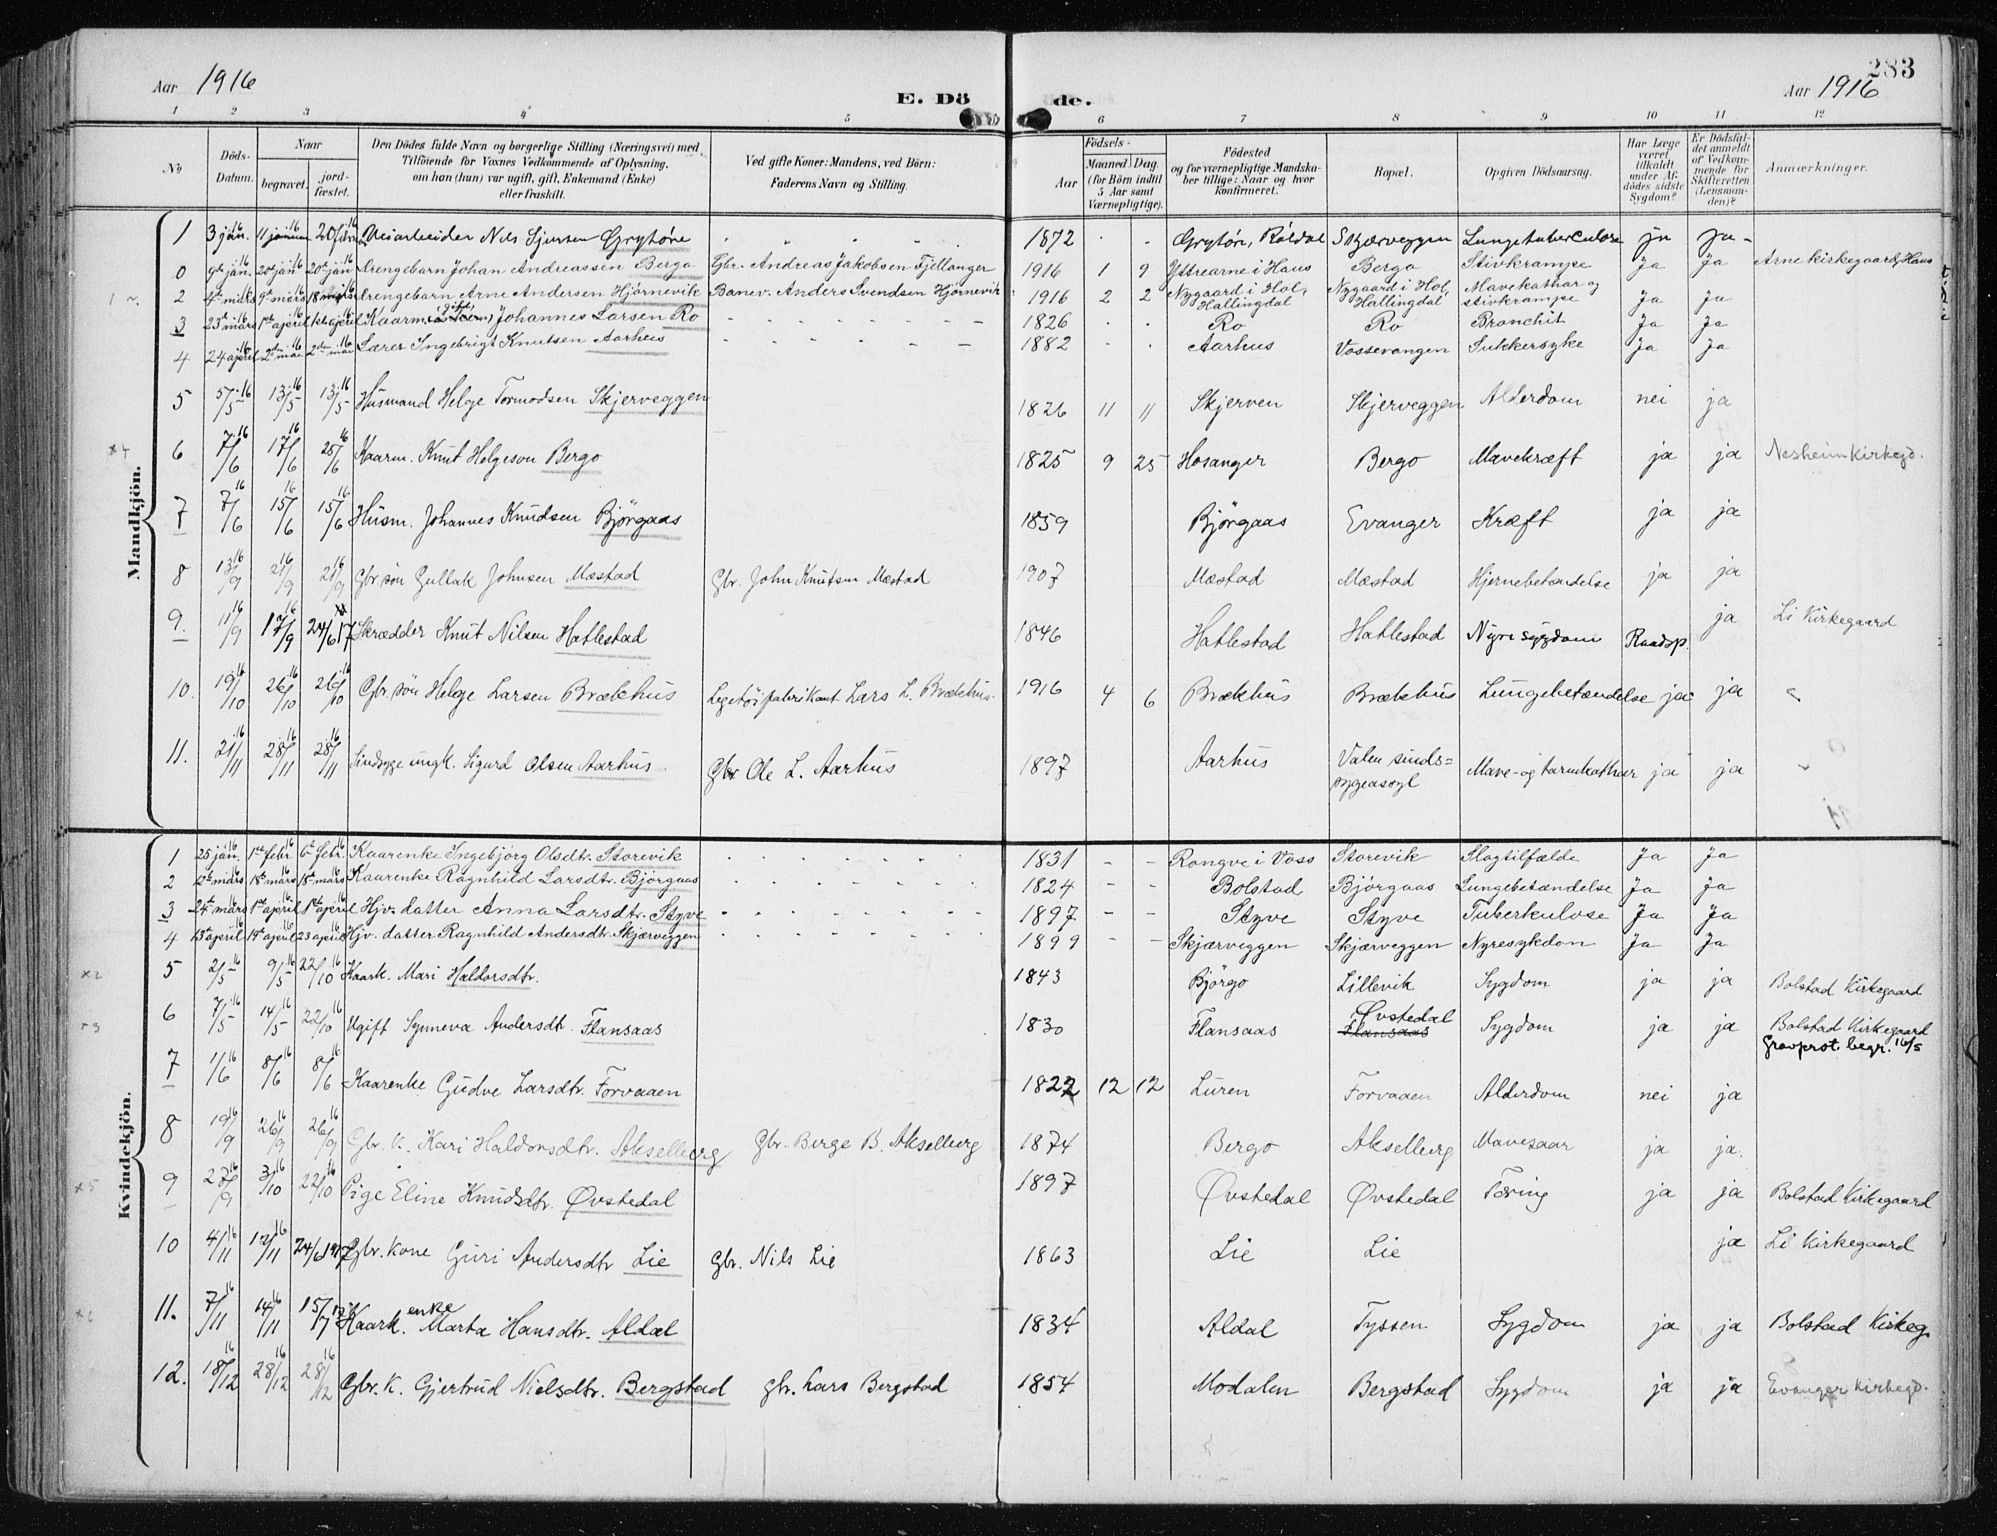 283
Aar 1916 E. Dö de. Aar 1916
1 2 3 4 5 6 7 8 9 10 11 12
No Döds-Datum. Naar begravet. jordfæstet. Den Dödes fulde Navn og borgerlige Stilling (Næringsvei) med Tilföiende for Voxnes Vedkommende af Oplysning, om han (hun) var ugift, gift, Enkemand (Enke) eller fraskilt. Ved gifte Koner: Mandens, ved Börn: Faderens Navn og Stilling. Födsels- Aar Maaned Dag (for Börn indtil 5 Aar samt Værnepligtige). Födested og for værnepligtige Mandskaber tillige: Naar og hvor konfirmeret. Bopæl. Opgiven Dödsaarsag. Har Læge været tilkaldt under Afdödes sidste Sygdom? Er Dödsfaldet anmeldt af Vedkommende for Skifteretten (Lensmanden)? Anmærkninger.
Mandkjön.
1 3 jan. 16 11 januar 16 20/1 16 Veiarbeider Nils Sjursen Grytöre 1872 Grytöre, Röldal Skjærveggen Lungetuberculose ja ja
0 9de jan. 16 20de jan 16 20de jan 16 Drengebarn Johan Andreassen Bergo Gbr. Andreas Jakobsen Fjellanger 1916 1 9 Ystrearne i Haus Bergo Stivkrampe Ja Ja Arne kirkegaard, Haus
2 4de mars 16 9de mars 16 18 mars 16 Drengebarn Arne Andersen Hjörnevik Banev. Anders Svendsen Hjörnevik 1916 2 2 Nygaard i Hol, Hallingdal Nygaard i Hol, Hallingdal Mavekathar og stivkrampe Ja Ja
3 23de mars 16 1ste april 16 1ste april 16 Kaarm. Johannes Larsen Ro 1826 Ro Ro Bronchit Ja Ja
4 24 april 16 2den mai 16 2den mai 16 Lærer Ingebrigt Knutsen Aarhus 1882 Aarhus Vossevangen Sukkersyke Ja Ja
5 5/5 16 13/5 16 13/5 16 Husmand Helge Tormodsen Skjerveggen 1826 11 11 Skjerven Skjerveggen Alderdom nei ja
6 7/6 16 17/6 16 25/6 16 Kaarm. Knut Helgeson Bergo 1825 9 25 Hosanger Bergo Mavekræft ja ja Nesheim Kirkegd.
7 7/6 16 15/6 16 15/6 16 Husm. Johannes Knudsen Björgaas 1859 Björgaas Evanger Kræft ja ja
8 13/9 16 21/9 16 21/9 16 Gbr. sön Gullak Johnsen Mæstad Gbr. John Knutsen Mæstad 1907 Mæstad Mæstad Hjernebetændelse ja ja
9. 11/9 16 17/9 16 24/6 17 Skrædder Knut Nilsen Hatlestad 1846 Hatlestad Hatlestad Nyresygdom Raadsp. ja Li Kirkegaard
10. 19/10 16 26/10 16 26/10 16 Gbr. sön Helge Larsen Brækhus Legetöifabrikant Lars L. Brækhus. 1916 4 6 Brækhus Brækhus Lungebetændelse ja ja
11. 21/11 16 28/11 16 28/11 16 Sindsyge ungk. Sigurd Olsen Aarhus Gbr Ole L. Aarhus 1897 Aarhus Valen sindssygeasyl Mave- og tarmkathar ja ja
Kvindekjön.
1 25 jan. 16 1ste febr. 16 6te febr. 16 Kaarenke Ingebjorg Olsdtr. Storevik 1831 Rongve i Voss Storevik Slagtilfælde Ja Ja
2 12te mars 16 18de mars 16 18de mars 16 Kaarenke Ragnhild Larsdtr. Björgaas 1824 Bolstad Björgaas Lungebetændelse Ja Ja
3 24de mars 16 1ste april 16 1ste april 16 Hjv. datter Anna Larsdtr. Styve 1897 Styve Styve Tuberkulose Ja Ja
4 13de april 16 19de april 16 23 april 16 Hjv. datter Ragnhild Andersdtr. Skjærveggen 1899 Skjærveggen Skjærveggen Nyresykdom Ja Ja
5 2/5 16 9/5 16 22/10 16 Kaark. Mari Haldorsdtr. 1843 Björgo Lillevik Sygdom ja ja Bolstad Kirkegaard
6 7/5 16 14/5 16 22/10 16 Ugift Synneva Andersdt. Flansaas 1830 Flansaas Flansaas Øvstedal Sygdom ja ja Bolstad Kirkegaard Gravprot. begr. 16/5
7 1/6 16 8/6 16 8/6 16 Kaarenke Gudve Larsdtr. Forvaaen 1822 12 12 Luren Forvaaen Alderdom nei ja
8 19/9 16 26/9 16 26/9 16 Gbr. K. Kari Haldorsdtr. Akselberg Gbr. Berge B. Akselberg 1874 Bergo Akselberg Mavesaar ja ja.
9 27/9 16 3/10 16 22/10 16 Pige Eline Knudsdtr. Øvstedal 1897 Øvstedal Øvstedal Tæring ja ja Bolstad Kirkegaard
10 4/11 16 12/11 16 24/6 1917 Gbr. kone Guri Andersdtr Lie Gbr. Nils Lie 1863 Lie Lie ja Li Kirkegaard
11. 7/11 16 14/11 16 15/7 17 Kaark. enke Marta Hansdtr. Aldal 1834 Aldal Tyssen Sygdom ja ja Bolstad Kirkeg.
12. 18/12 16 28/12 16 28/12 16 Gbr. K. Gjertrud Nielsdtr. Bergstad Gbr. Lars Bergstad 1854 Modalen Bergstad Sygdom ja ja Evanger Kirkegd.